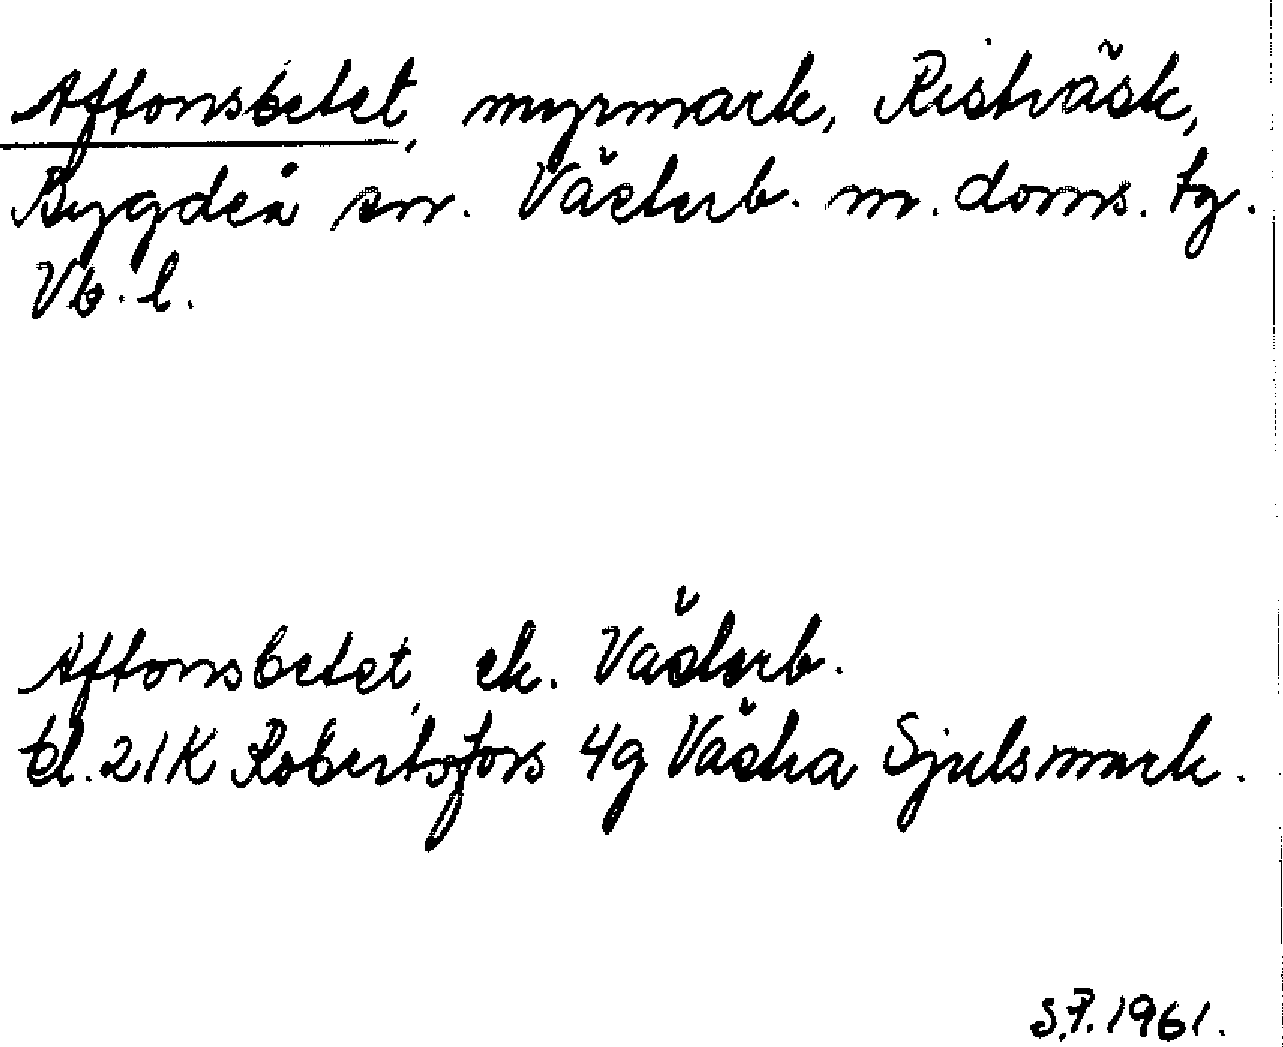 Aftonsbetet, myrmark, Risträsk,
Bygdeå sn. Västerb. m. doms. tg.
Vb. l.
Aftonsbetet, ek. Västerb.
bl. 21K Robertsfors 4g Västra Sjulsmark.
S.F. 1961.